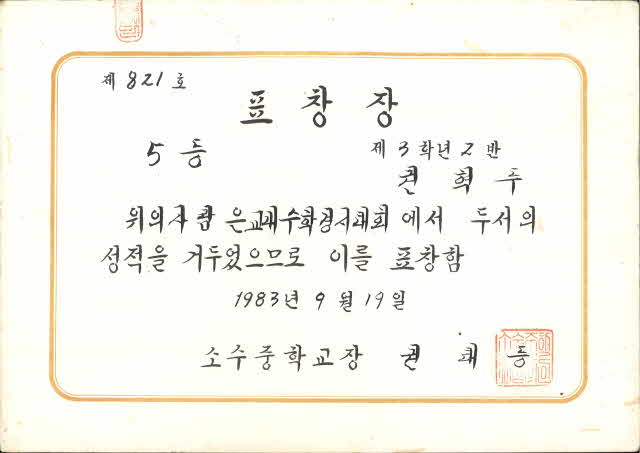 제 821 호
표 창 장
5 등
제 3 학년 2 반
권 혁 주
위의 사람 은 교내수학경시대회 에서 두서의
성적을 거두었으므로 이를 표창함
1983년 9월 19일
소수중학교장 권 태 등